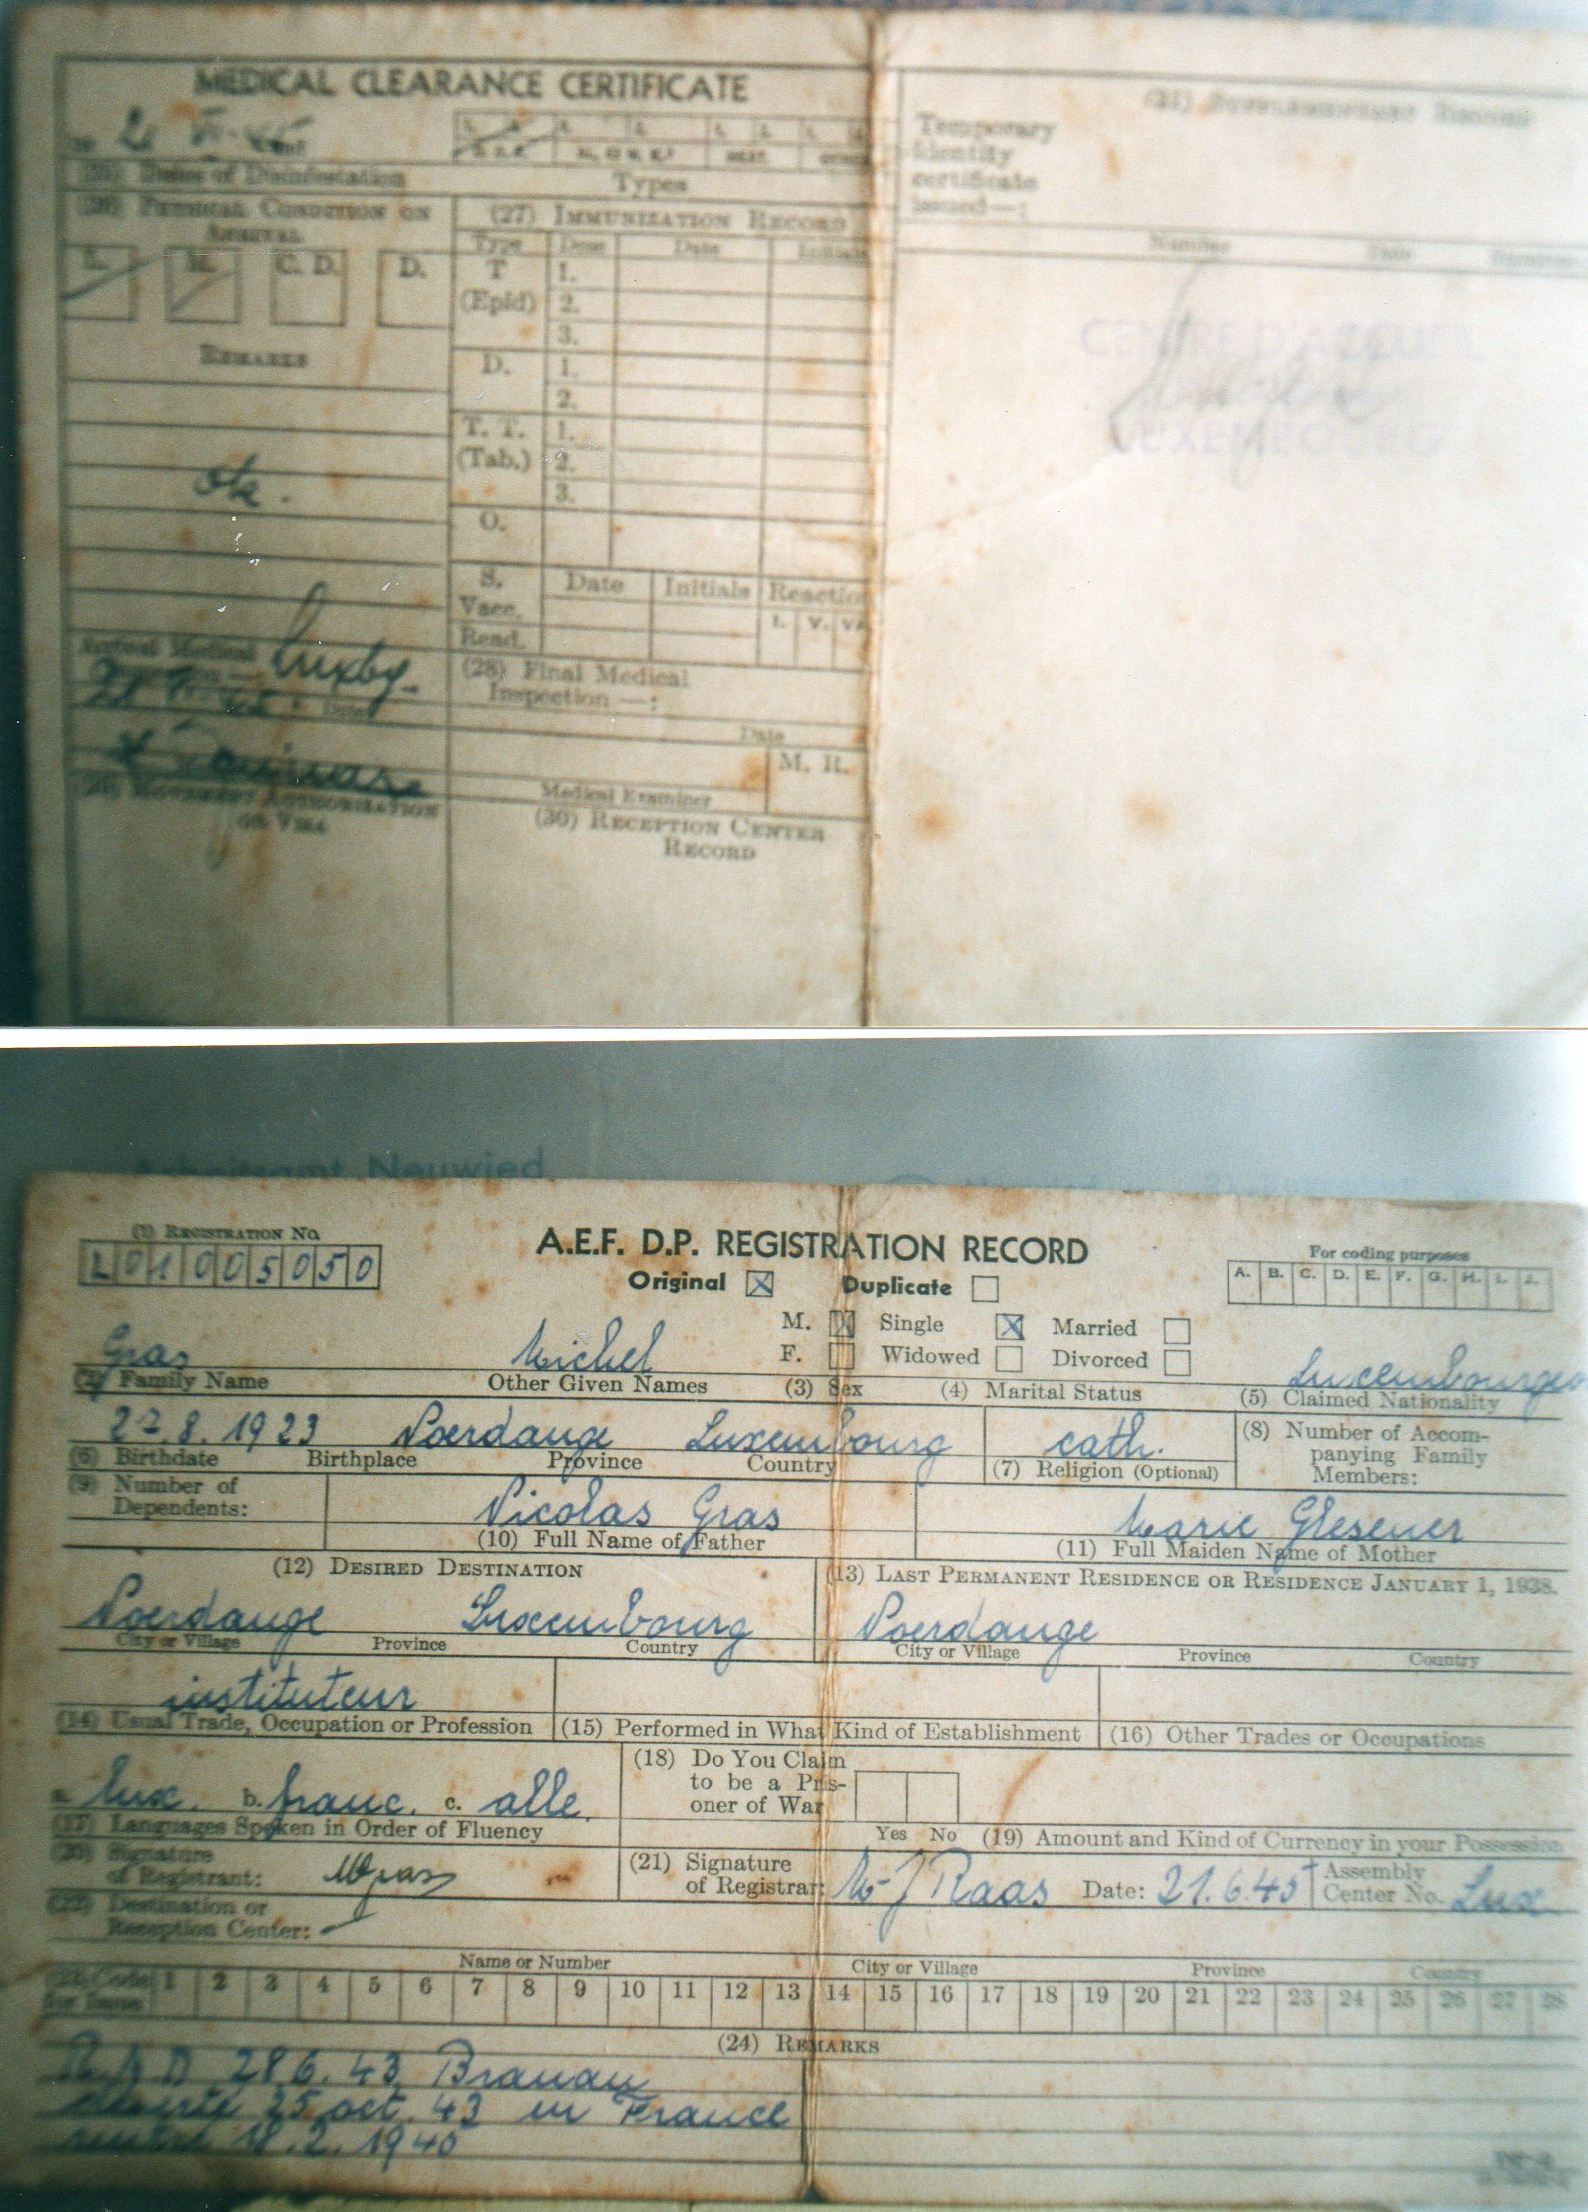 MEDICAL CLEARANCE CERTIFICATE
Dates of Disinfestation Types
(26) PHYSICAL CONDITION ON
ARRIVAL
L. M. C. D. D.
REMARKS
ok.
(27) IMMUNIZATION RECORD
Type Dose Date Initials
T 1.
(Epid) 2.
3.
D. 1.
2.
T. T. 1.
(Tab.) 2.
3.
O.
S. Date Initials Reactio
Vacc. I. V. VA
Read.
Arrival Medical
Luxbg.
Date
(28) Final Medical
Inspection —:
Date
M. R.
Medical Examiner
(29) MOVEMENT AUTHORIZATION
OR VISA
(30) RECEPTION CENTER
RECORD
(31) SUPPLEMENTARY RECORD
Temporary
identity
certificate
issued—:
Number Date Signature
CENTRE D'ACCUEIL
LUXEMBOURG
Arbeitsamt Neuwied
(1) REGISTRATION No.
L01005050
A.E.F. D.P. REGISTRATION RECORD
Original X Duplicate
For coding purposes
A. B. C. D. E. F. G. H. I. J.
M. X Single X Married
F. Widowed Divorced
Gras Michel Luxembourgeo
(2) Family Name Other Given Names (3) Sex (4) Marital Status (5) Claimed Nationality
8. 1923 Noerdange Luxembourg cath.
(6) Birthdate Birthplace Province Country (7) Religion (Optional)
(8) Number of Accom-
panying Family
Members:
(9) Number of
Dependents:
Nicolas Gras
(10) Full Name of Father
Marie Glesener
(11) Full Maiden Name of Mother
(12) DESIRED DESTINATION
(13) LAST PERMANENT RESIDENCE OR RESIDENCE JANUARY 1, 1938.
Noerdange Luxembourg Noerdange
City or Village Province Country City or Village Province Country
instituteur
(14) Usual Trade, Occupation or Profession (15) Performed in What Kind of Establishment (16) Other Trades or Occupations
a. lux. b. franc. c. alle.
(17) Languages Spoken in Order of Fluency
(18) Do You Claim
to be a Pris-
oner of War
Yes No
(19) Amount and Kind of Currency in your Possession
(20) Signature
of Registrant: MGras
(21) Signature
of Registrar: Raas Date: 21.6.45 Assembly
Center No. Lux
(22) Destination or
Reception Center: —
Name or Number City or Village Province Country
(23) Code
for Issue
1 2 3 4 5 6 7 8 9 10 11 12 13 14 15 16 17 18 19 20 21 22 23 24 25 26 27 28
(24) REMARKS
R A D 28.6.43 Branau
25 oct. 43 en France
.2. 1945